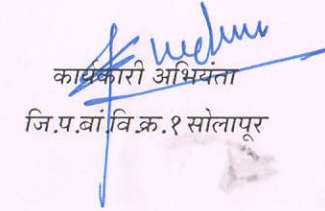 कार्यकारी अभियंता
जि.प.बां.वि.क्र.१ सोलापूर